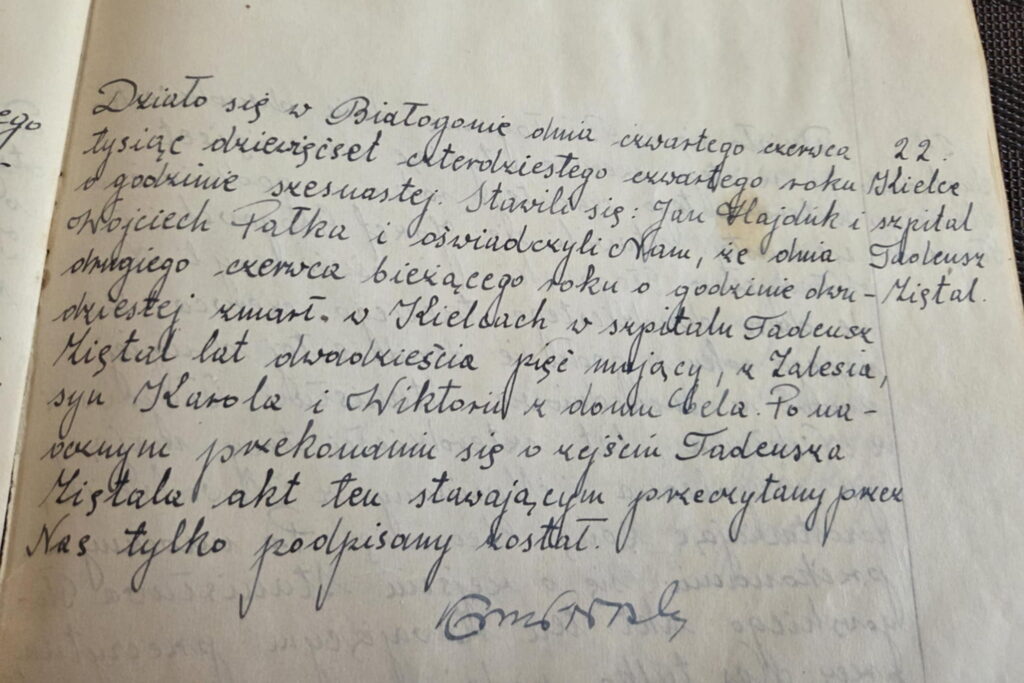 Działo się w Białogonie dnia czwartego czerwca
tysiąc dziewięćset czterdziestego czwartego roku
o godzinie szesnastej. Stawili się: Jan Hajduk i
Wojciech Pałka i oświadczyli Nam, że dnia
drugiego czerwca bieżącego roku o godzinie dwu-
dziestej zmarł w Kielcach w szpitalu Tadeusz
Ziętal lat dwadzieścia pięć mający, z Zalesia,
syn Karola i Wiktorii z domu Cela. Po na-
ocznym przekonaniu się o zejściu Tadeusza
Ziętala akt ten stawającym przeczytany przez
Nas tylko podpisany został.
22.
Kielce
szpital
Tadeusz
Ziętal.
ego